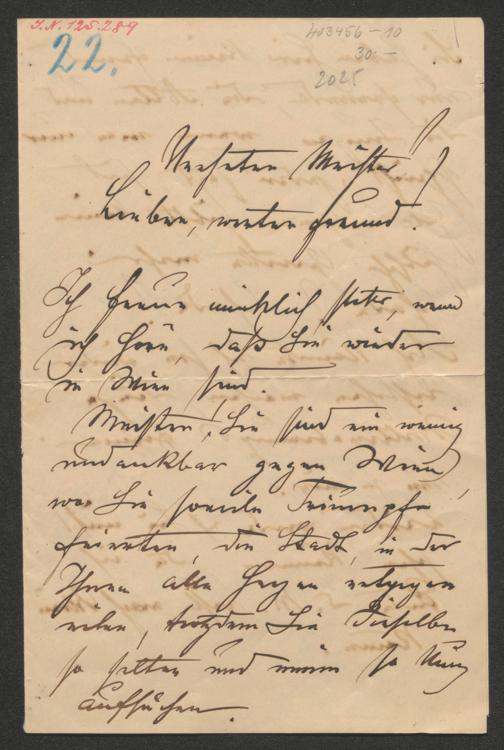 I.N. 125.289
22.
403456-10
30.-
2025
Verehrter Meister!
Lieber, werter Freund!
Ich freue mich stets, wenn
ich höre, daß Sie wieder
in Wien sind.
Meister! Sie sind ein wenig
undankbar gegen Wien,
wo Sie soviele Triumpfe
feierten, die Stadt, in der
Ihnen alle Herzen entgegen
eilen, trotzdem Sie dieselbe
so selten und immer so kurz
aufsuchen.